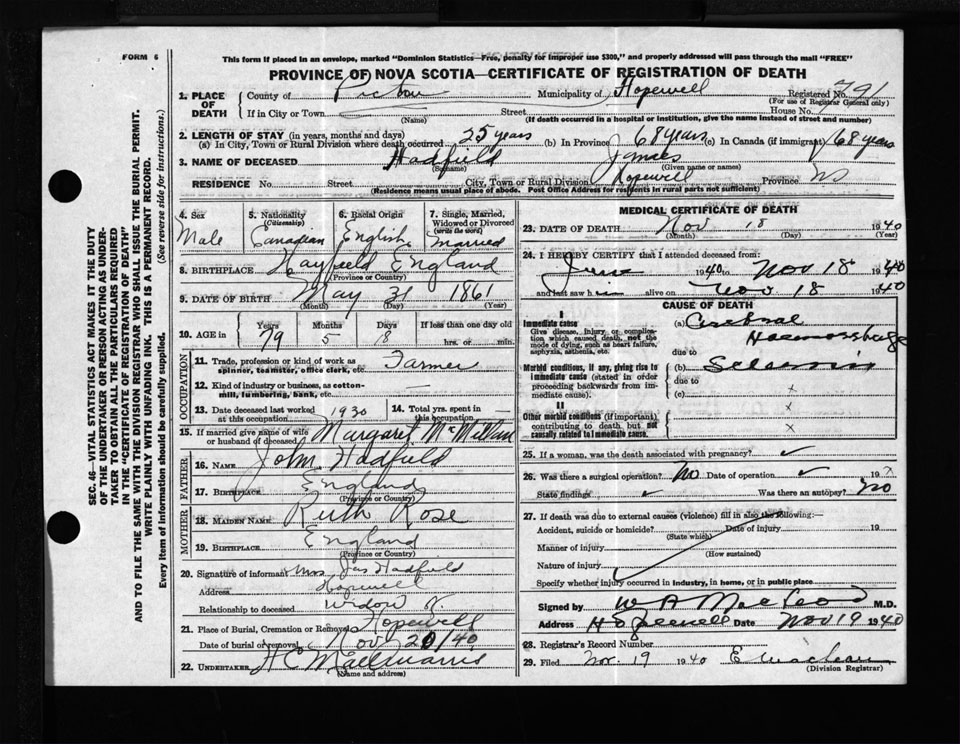 FORM 6
This form if placed in an envelope, marked "Dominion Statistics—Free, penalty for improper use $300," and properly addressed will pass through the mail "FREE"
PROVINCE OF NOVA SCOTIA—CERTIFICATE OF REGISTRATION OF DEATH
1. PLACE OF DEATH County of Pictou Municipality of Hopewell Registered No. 791
(For use of Registrar General only)
If in City or Town Street House No.
(Name) (If death occurred in a hospital or institution, give the name instead of street and number)
2. LENGTH OF STAY (in years, months and days)
(a) In City, Town or Rural Division where death occurred 25 years (b) In Province 68 years (c) In Canada (if immigrant) 68 years
3. NAME OF DECEASED Hadfield James
(Surname) (Given name or names)
RESIDENCE No. Street City, Town or Rural Division Hopewell Province NS
(Residence means usual place of abode. Post Office Address for residents in rural parts not sufficient)
SEC. 46—VITAL STATISTICS ACT MAKES IT THE DUTY
OF THE UNDERTAKER OR PERSON ACTING AS UNDER-
TAKER TO OBTAIN ALL THE PARTICULARS REQUIRED
IN THE "CERTIFICATE OF REGISTRATION OF DEATH"
AND TO FILE THE SAME WITH THE DIVISION REGISTRAR WHO SHALL ISSUE THE BURIAL PERMIT.
WRITE PLAINLY WITH UNFADING INK. THIS IS A PERMANENT RECORD.
Every item of information should be carefully supplied. (See reverse side for instructions.)
4. Sex 5. Nationality (Citizenship) 6. Racial Origin 7. Single, Married, Widowed or Divorced (write the word)
Male Canadian English Married
8. BIRTHPLACE Hayfield England
(Province or Country)
9. DATE OF BIRTH May 31 1861
(Month) (Day) (Year)
10. AGE in Years Months Days If less than one day old
79 5 18 hrs. or min.
OCCUPATION
11. Trade, profession or kind of work as spinner, teamster, office clerk, etc. Farmer
12. Kind of industry or business, as cotton-mill, lumbering, bank, etc.
13. Date deceased last worked at this occupation 1930 14. Total yrs. spent in this occupation
15. If married give name of wife or husband of deceased Margaret McMillan
FATHER
16. NAME John Hadfield
17. BIRTHPLACE England
(Province or Country)
MOTHER
18. MAIDEN NAME Ruth Rose
19. BIRTHPLACE England
(Province or Country)
20. Signature of informant Mrs Jas Hadfield
Address Hopewell
Relationship to deceased Widow
21. Place of Burial, Cremation or Removal Hopewell
Date of burial or removal Nov 20/40
22. UNDERTAKER
(Name and address)
MEDICAL CERTIFICATE OF DEATH
23. DATE OF DEATH Nov 18 1940
(Month) (Day) (Year)
24. I HEREBY CERTIFY that I attended deceased from:
June 1940 to Nov 18 1940
and last saw h im alive on Nov 18 1940
CAUSE OF DEATH
I
Immediate cause (a) Cerebral Haemorrhage
Give disease, injury or complication which caused death, not the mode of dying, such as heart failure, asphyxia, asthenia, etc.
due to
Morbid conditions, if any, giving rise to immediate cause (stated in order proceeding backwards from immediate cause). (b)
due to
(c) x
II
Other morbid conditions (if important) contributing to death but not causally related to immediate cause. x
x
25. If a woman, was the death associated with pregnancy? ✓
26. Was there a surgical operation? No Date of operation ✓ 19 x
State findings ✓ Was there an autopsy? No
27. If death was due to external causes (violence) fill in also the following:—
Accident, suicide or homicide? Date of injury 19
(State which)
Manner of injury
(How sustained)
Nature of injury
Specify whether injury occurred in industry, in home, or in public place
Signed by W A MacLeod M.D.
Address Hopewell Date Nov 19 1940
28. Registrar's Record Number
29. Filed Nov. 19 1940
(Division Registrar)